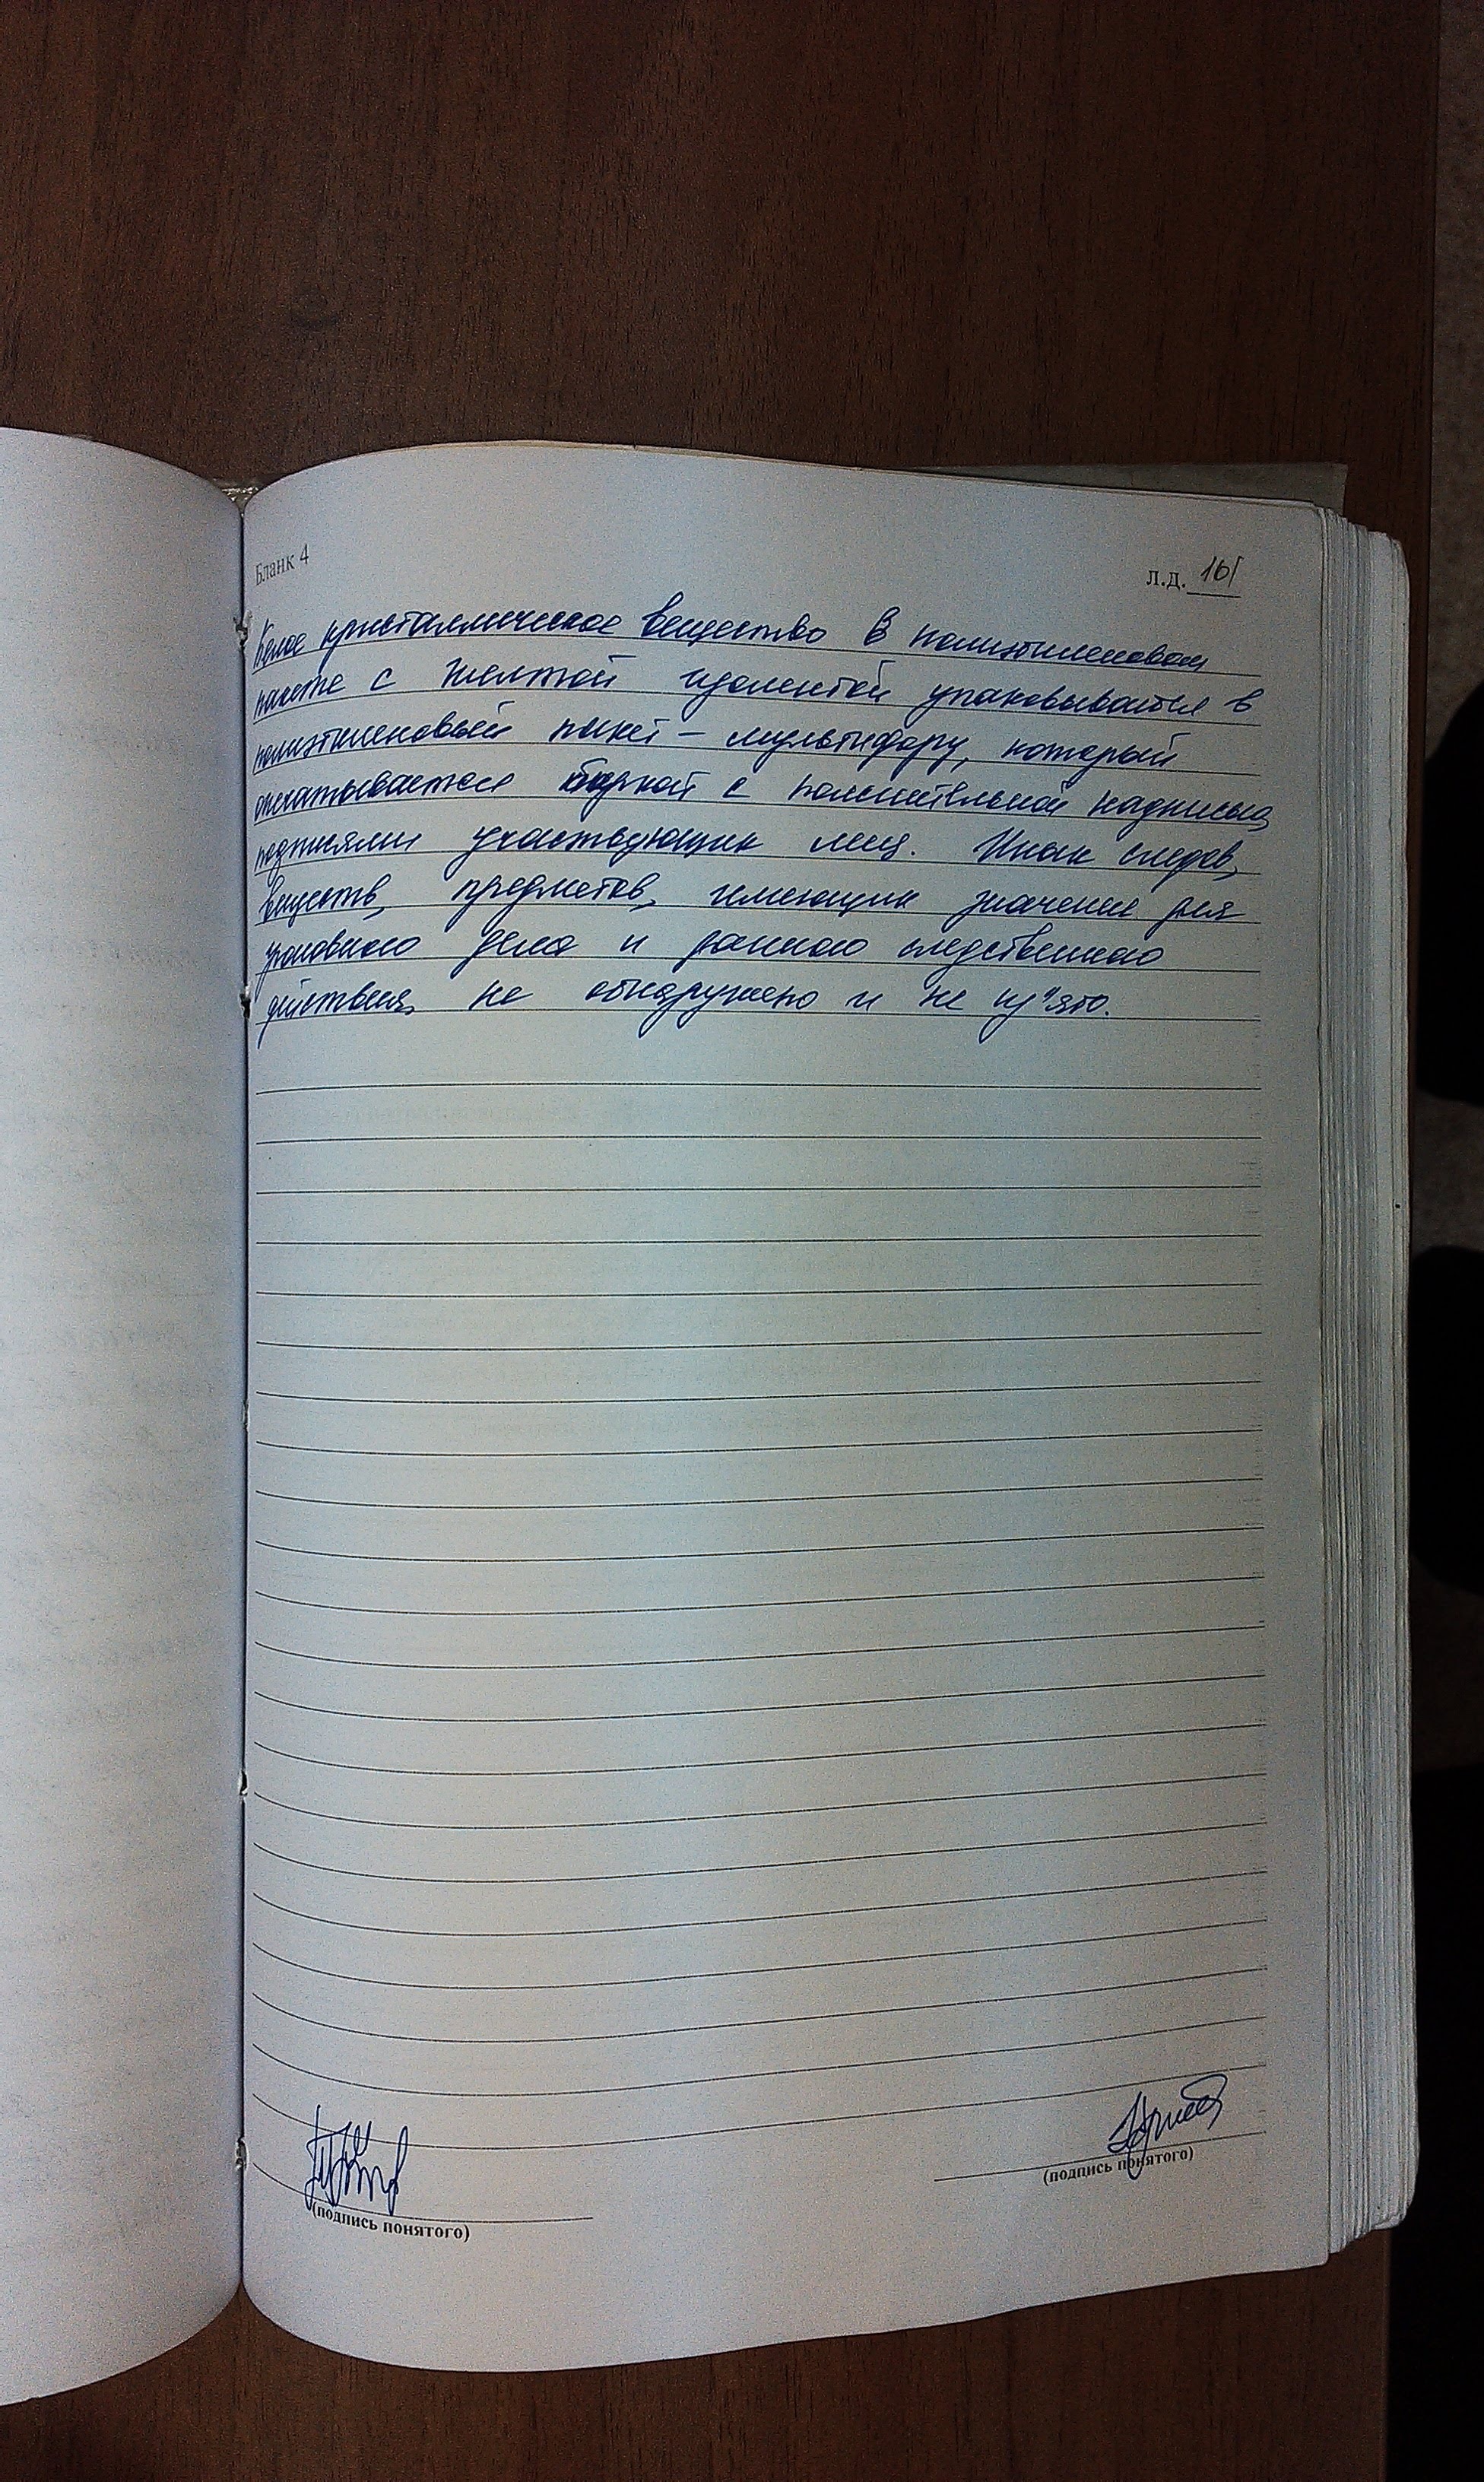 Бланк 4
л.д. 161
Белое кристаллическое вещество в полиэтиленовом
пакете с желтой изолентой упаковывается в
полиэтиленовый пакет – мультифору, который
опечатывается биркой с пояснительной надписью,
подписями участвующих лиц. Иных следов,
веществ, предметов, имеющих значение для
уголовного дела и данного следственного
действия, не обнаружено и не из"ято.
(подпись понятого)
(подпись понятого)